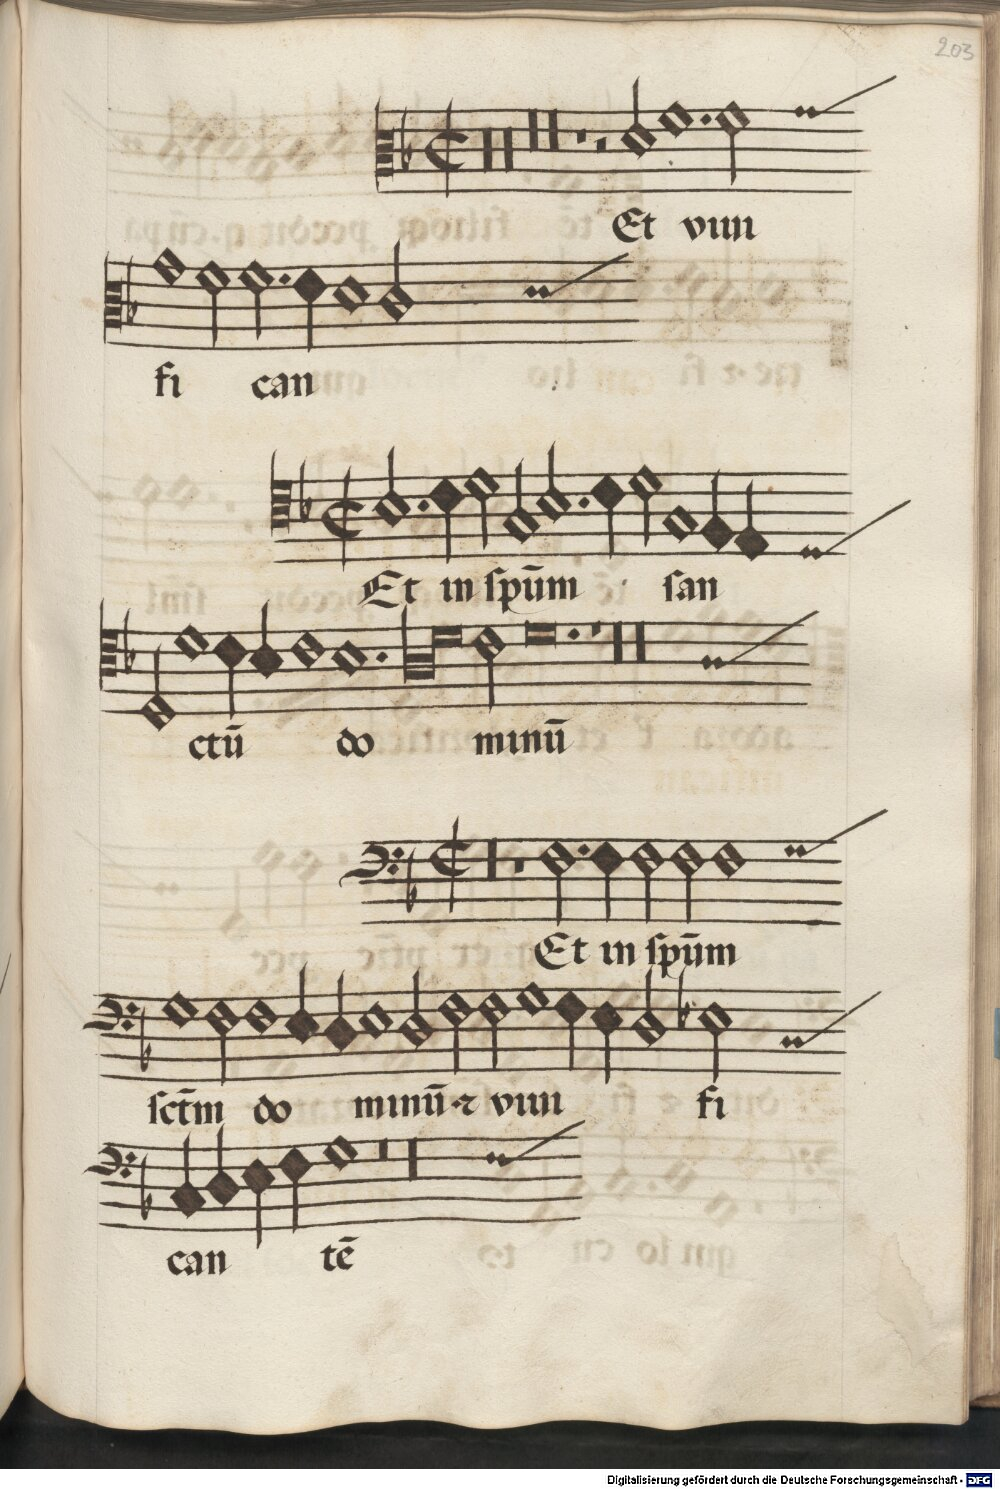 203
Et viui
fi can
Et in spūm san
ctū do minū
Et in spūm
sct̄m do minū · ⁊ viui fi
can tē
Digitalisierung gefördert durch die Deutsche Forschungsgemeinschaft - DFG